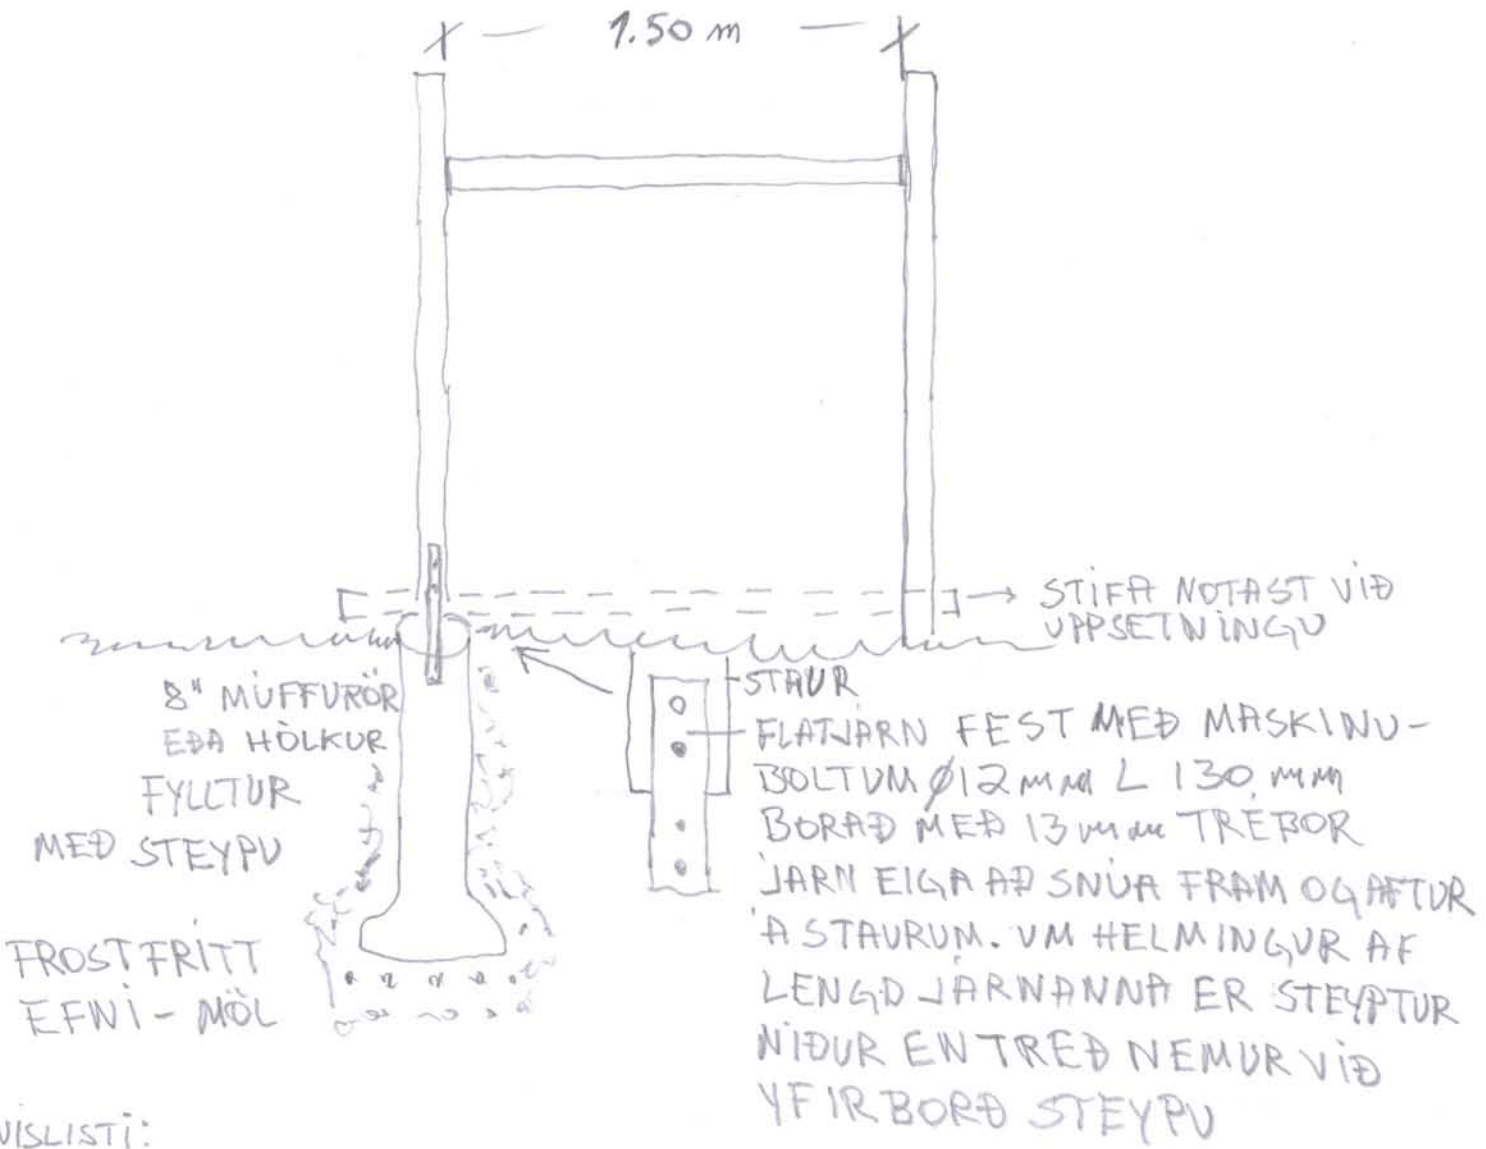 1.50 m
STÍFA NOTAST VIÐ
UPPSETNINGU
8" MÚFFURÖR
EÐA HÓLKUR
FYLLTUR
MEÐ STEYPU
FROSTFRÍTT
EFNI - MÖL
STAUR
FLATJÁRN FEST MEÐ MASKINU-
BOLTUM Ø12 mm L 130 mm
BORAÐ MEÐ 13 mm TRÉBOR
JÁRN EIGA AÐ SNÚA FRAM OG AFTUR
Á STAURUM. UM HELMINGUR AF
LENGD JÁRNANNA ER STEYPTUR
NIÐUR EN TREÐ NEMUR VIÐ
YFIRBORÐ STEYPU
NISLISTI: